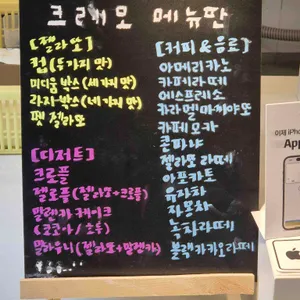 크레모 메뉴판
[젤라또]
컵 (두가지 맛)
미디움 박스 (세가지 맛)
라지 박스 (네가지 맛)
펫 젤라또
[디저트]
크로플
젤로플 (젤라또+크로플)
말렌카 케이크
(코코아 / 호두)
[커피&음료]
아메리카노
카페라떼
에스프레소
카라멜마끼야또
카페모카
콘파냐
젤라또 라떼
아포카토
유자차
자몽차
녹차라떼
블랙카카오라떼
이제 iPh
App